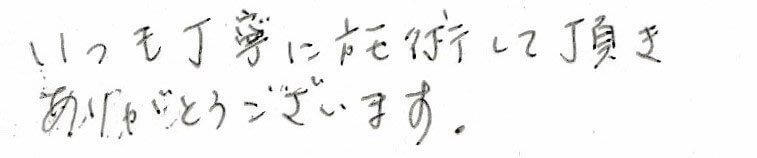 いつも丁寧に施術して頂き
ありがとうございます。